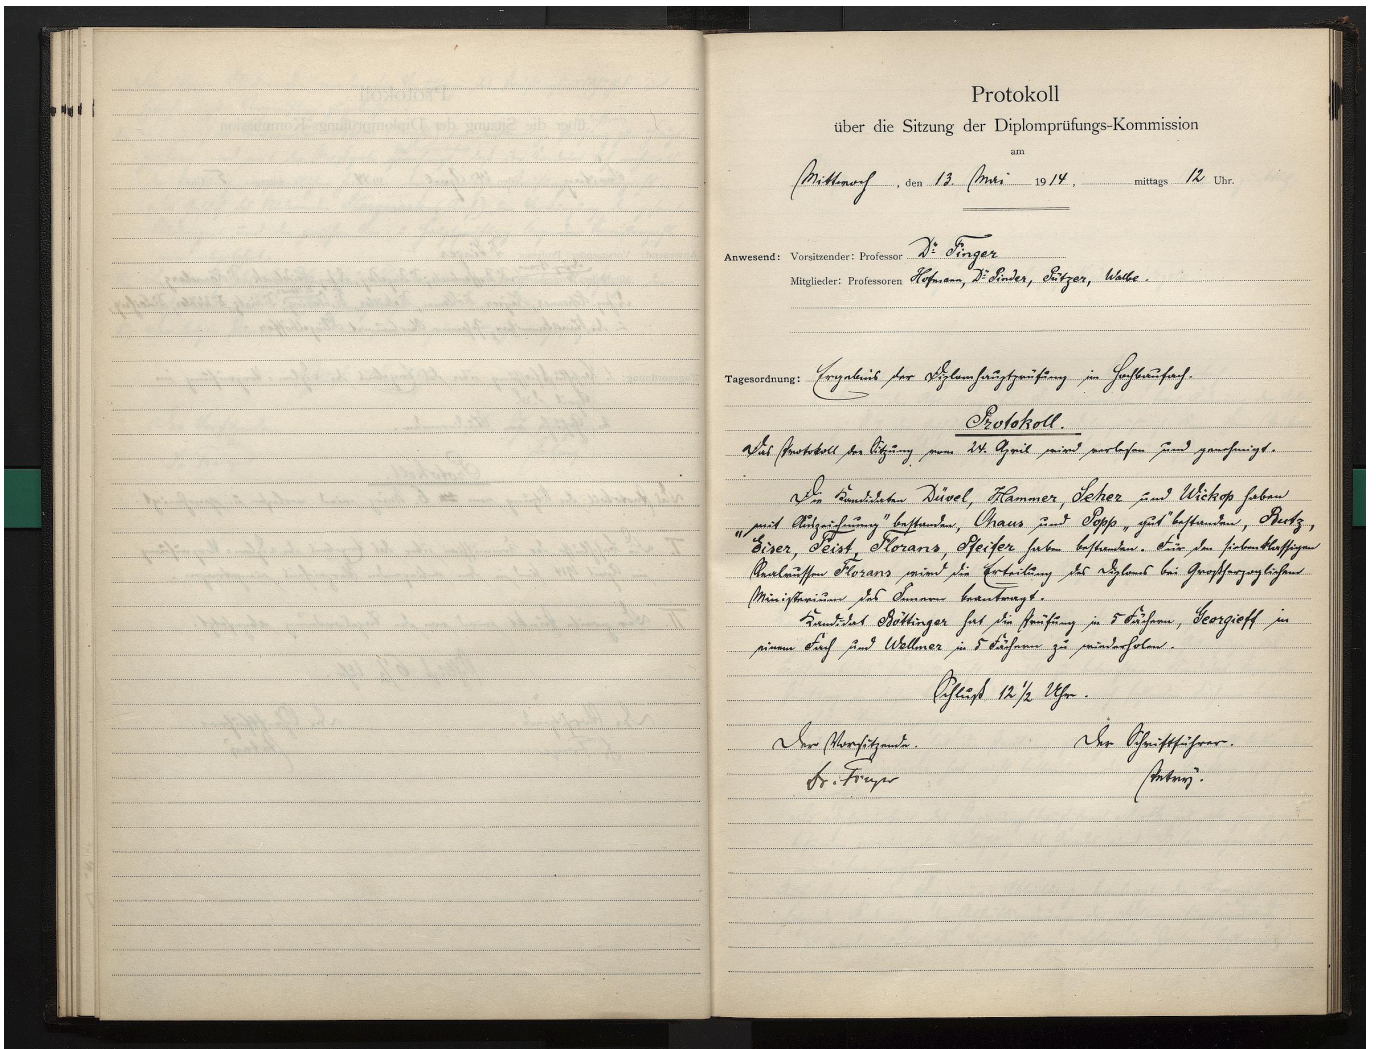 Protokoll
über die Sitzung der Diplomprüfungs-Kommission
am
Mittwoch, den 13. Mai 1914, mittags 12 Uhr.
Anwesend: Vorsitzender: Professor Dr. Finger
Mitglieder: Professoren Hofmann, Dr. Pinder, Pützer, Walbe.
Tagesordnung: Ergebnis der Diplomhauptprüfung im Hochbaufach.
Protokoll.
Das Protokoll der Sitzung vom 24. April wird verlesen und genehmigt.
Die Kandidaten Düvel, Hammer, Seher und Wickop haben
"mit Auszeichnung" bestanden, Ohaus und Popp "gut" bestanden, Butz,
Eiser, Feist, Florans, Pfeifer haben bestanden. Für den siebenklassigen
Realrussen Florans wird die Erteilung des Diploms bei Großherzoglichem
Ministerium des Innern beantragt.
Kandidat Böttinger hat die Prüfung in 5 Fächern, Georgieff in
einem Fach und Wallmer in 5 Fächern zu wiederholen.
Schluß 12 1/2 Uhr.
Der Vorsitzende. Der Schriftführer.
Dr. Finger Petry.